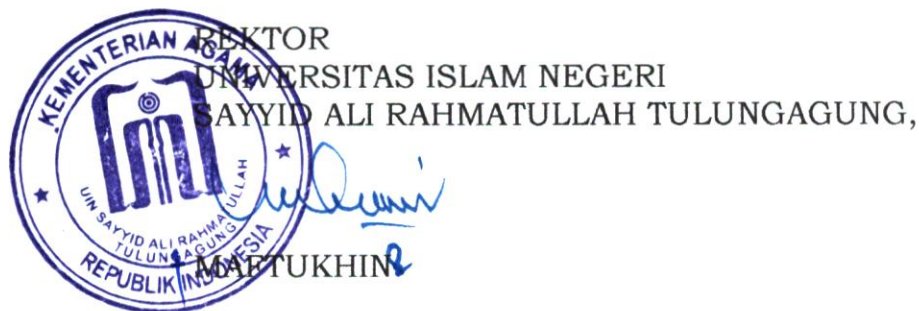 REKTOR
UNIVERSITAS ISLAM NEGERI
SAYYID ALI RAHMATULLAH TULUNGAGUNG,
KEMENTERIAN AGAMA
UIN SAYYID ALI RAHMATULLAH
TULUNGAGUNG
REPUBLIK INDONESIA
MAFTUKHIN